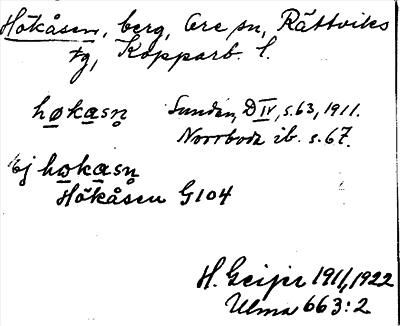 Hökåsen, berg, Ore sn, Rättviks
fg, Kopparb. l.
høkasn̥ Sundén, D IV, s. 63, 1911.
Norrboda ib. s. 67.
Ej høkasn̥
Hökåsen G104
H. Geijer 1911, 1922
Ulma 663:2